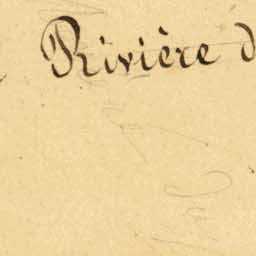 Rivière d